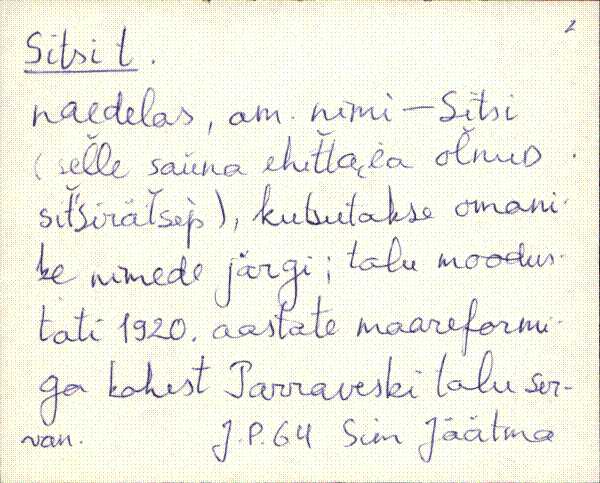 2
Sitsi t.
naedelas, am. nimi – Sitsi
(sel̆le sau̯na ehit̆taja ol̆nuD
sit̆sirät̆sep), kutsutakse omani-
ke nimede järgi; talu moodus-
tati 1920. aastate maareformi-
ga kahest Parraveski talu ser-
van. J.P.64 Siim Jäätma